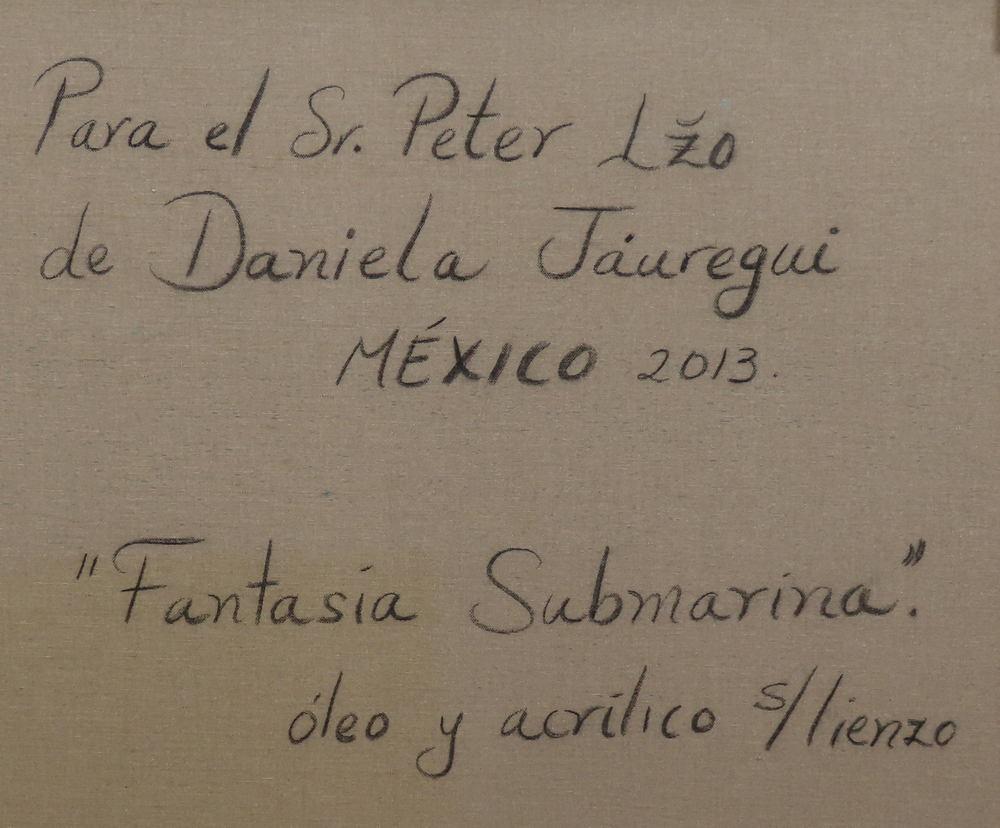 Para el Sr. Peter Lžo
de Daniela Jáuregui
MÉXICO 2013.
"Fantasía Submarina".
óleo y acrílico s/lienzo